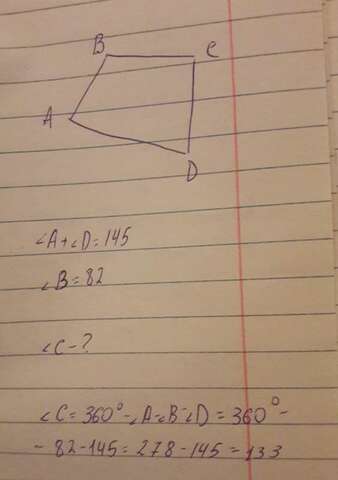 B C
A
D
∠A+∠D=145
∠B=82
∠C-?
∠C=360°-∠A-∠B-∠D=360°-
-82-145=278-145=133